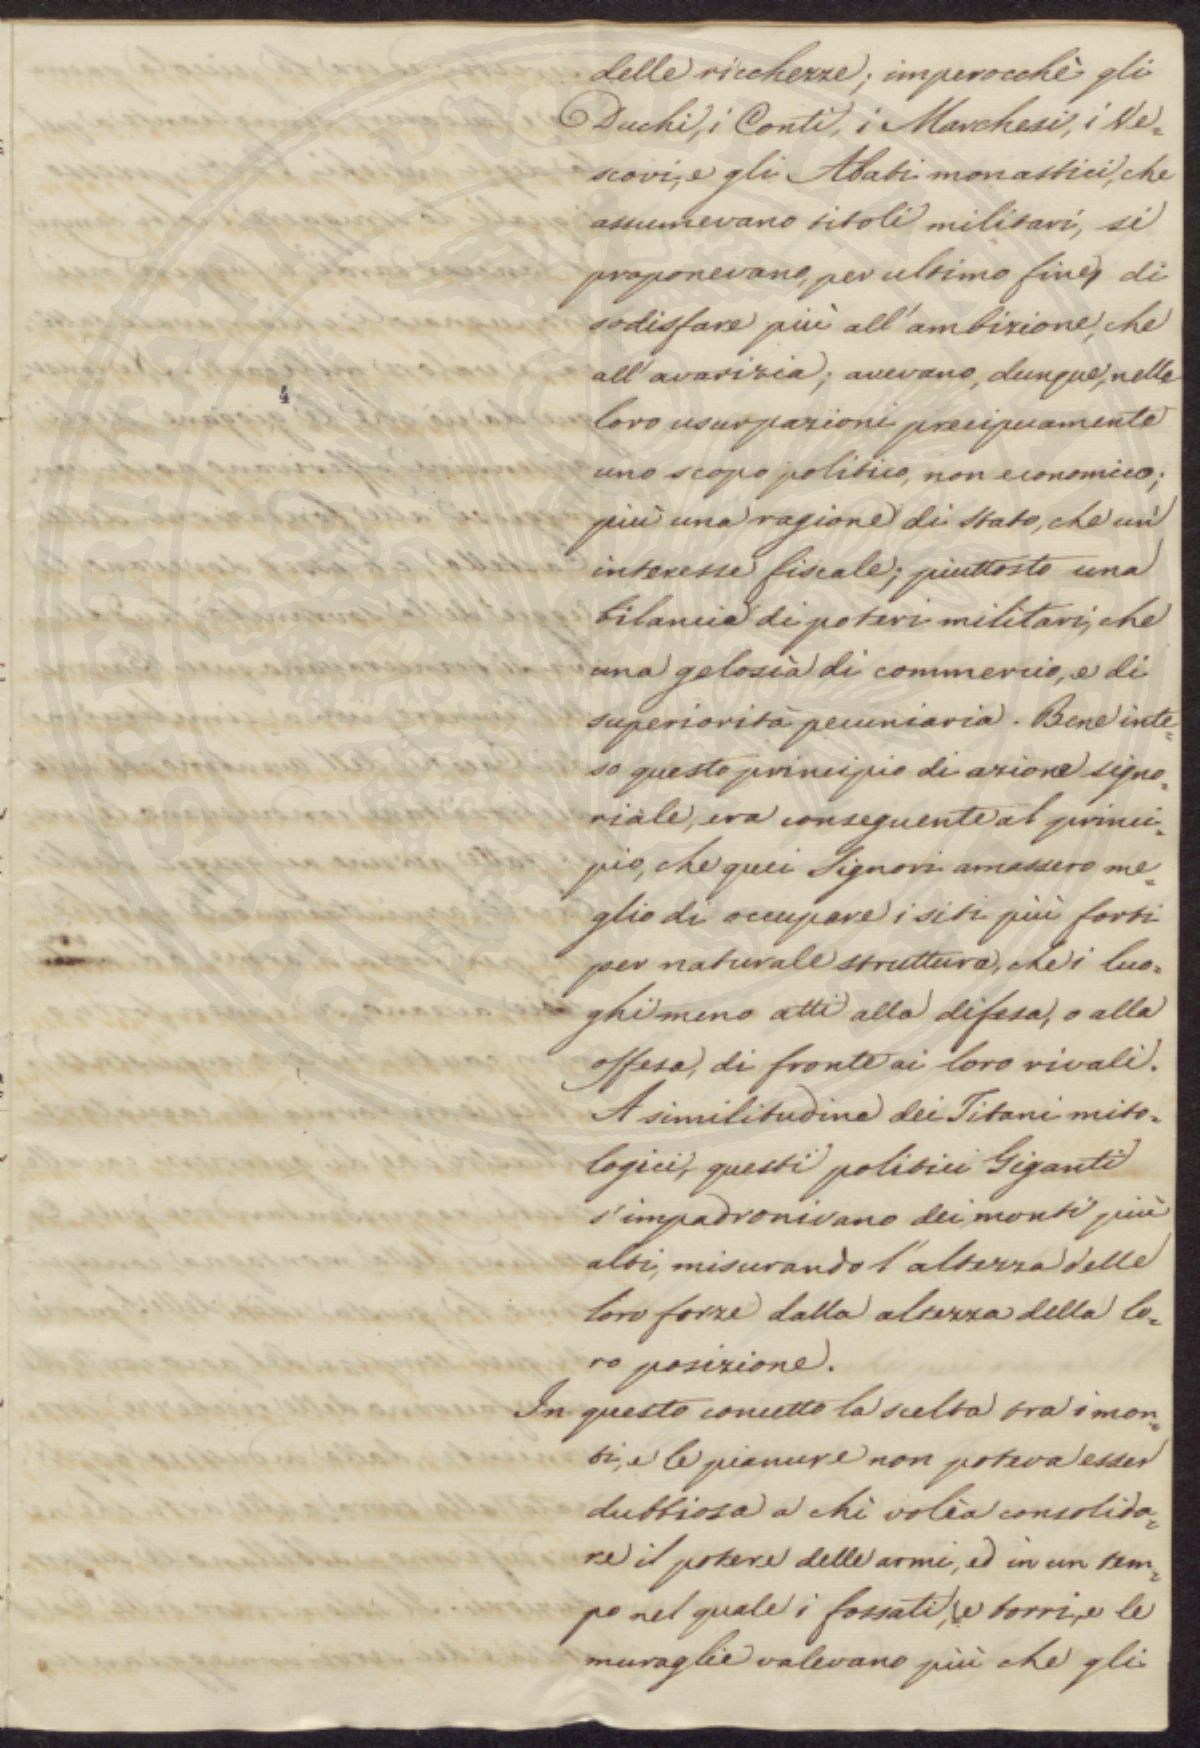 delle ricchezze; imperocchè gli
Duchi, i Conti, i Marchesi, i Ve=
scovi, e gli Abati monastici, che
assumevano titoli militari, si
proponevano, per ultimo fine, di
sodisfare più all'ambizione, che
all'avarizia; avevano, dunque, nelle
4
loro usurpazioni precipuamente
uno scopo politico, non economico;
più una ragione di stato, che un
interesse fiscale; piuttosto una
bilancia di poteri militari, che
una gelosìa di commercio, e di
superiorità pecuniaria. Bene inte=
so questo principio di azione signo=
riale, era conseguente al princi=
pio, che quei Signori amassero me=
glio di occupare i siti più forti
per naturale struttura, che i luo=
ghi meno atti alla difesa, o alla
offesa, di fronte ai loro rivali.
A similitudine dei Titani mito=
logici, questi politici Giganti
s'impadronivano dei monti più
alti, misurando l'altezza delle
loro forze dalla altezza della lo=
ro posizione.
In questo concetto la scelta tra i mon=
ti, e le pianure non poteva esser
dubbiosa a chi volèa consolida=
re il potere delle armi, ed in un tem=
po nel quale i fossati, e torri, e le
muraglie valevano più che gli